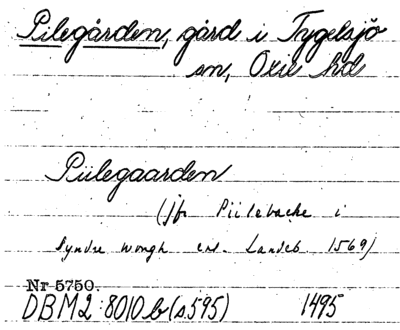 Pilegården, gård i Tygelsjö
sn, Oxie hd
Piilegaarden
(jfr Piilebacke i
Syndre wongh ens. Landeb 1569)
Nr 5750.
DBM2:8010 b (s.595) 1495